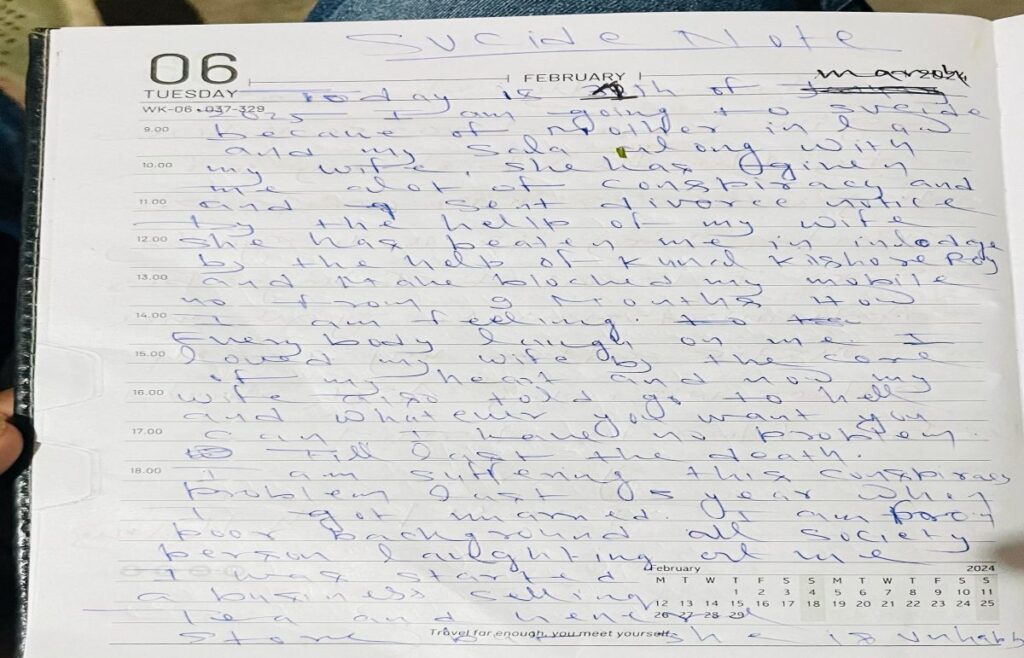 Sucide Note
06
TUESDAY
FEBRUARY
WK-06 • 037-329
Today is th of march
2025 I am going to sucide
9.00 because of Mother in law
and my Sala along with
10.00 my wife, she has given
me alot of conspiracy and
11.00 and sent divorce notice
by the help of my wife
12.00 she has beaten me in
by the help of Kishore Roy
13.00 and blocked my mobile
no from 9 Months now
14.00 I am feeling.
Every body laugh on me I
15.00 loved my wife by the core
of my heart and now my
16.00 wife also told go to hell
and whatever you want you
17.00 can I have no problem.
Till last the death.
18.00 I am suffering this conspiracy
problem last 05 year when
I got married. I am poor
poor background all society
person laughting at me
I was started
a business selling
Tea and
Store she is unhappy
February 2024
M T W T F S S M T W T F S S
1 2 3 4 5 6 7 8 9 10 11
12 13 14 15 16 17 18 19 20 21 22 23 24 25
26 27 28 29
Travel far enough, you meet yourself.